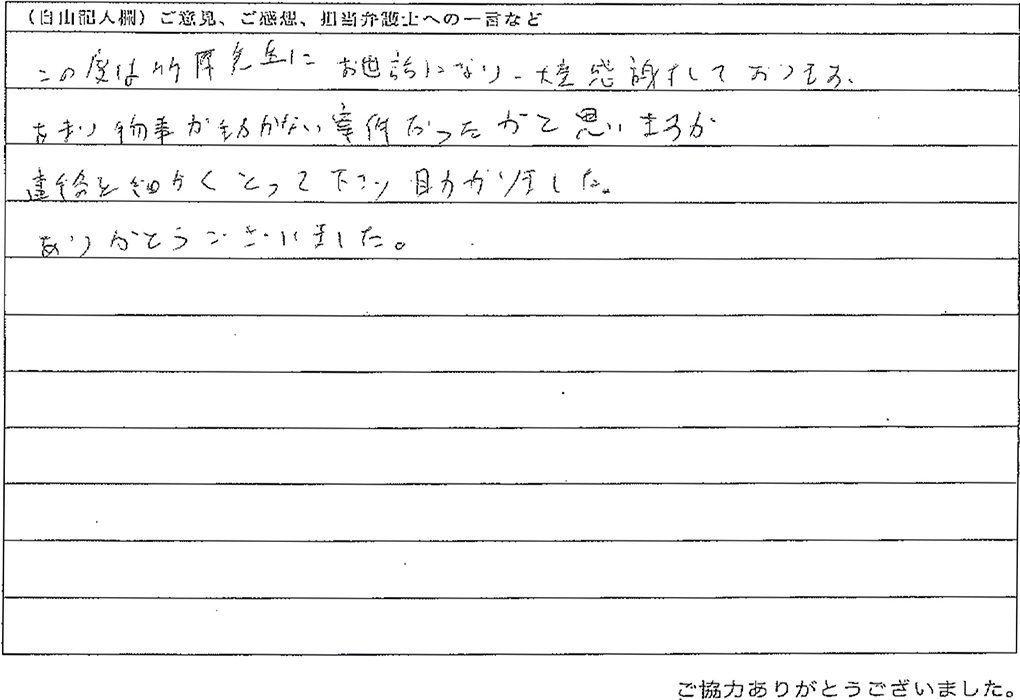 （自由記入欄）ご意見、ご感想、担当弁護士への一言など
この度は竹厚先生にお世話になり、大変感謝しております。
あまり物事が動かない案件だったかと思いますが
連絡を細かくとって下さり助かりました。
ありがとうございました。
ご協力ありがとうございました。